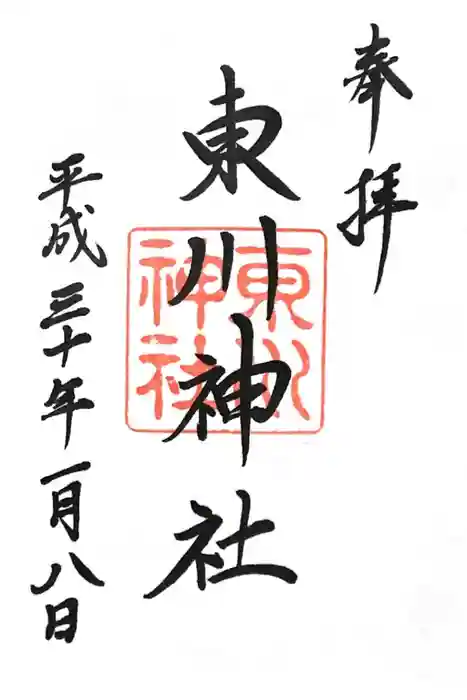 奉拝
東川神社
東川神社
平成三十年一月八日